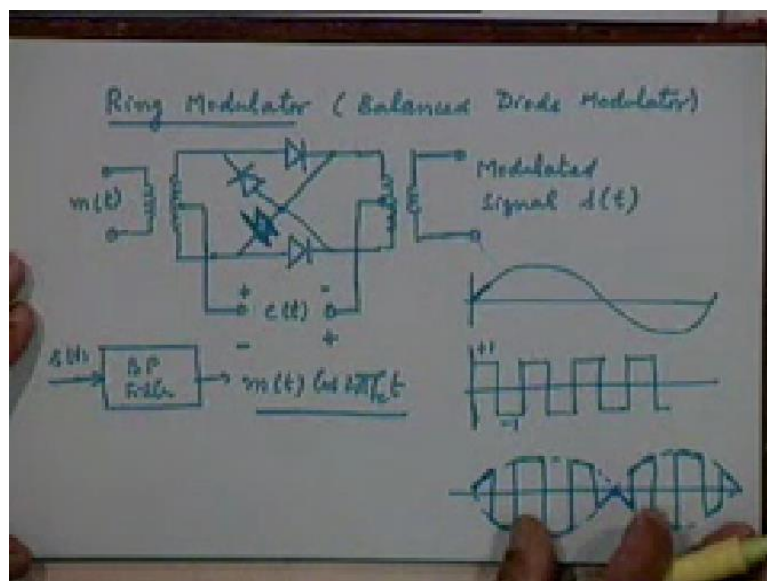 Ring Modulator (Balanced Diode Modulator)
m(t)
Modulated
Signal s(t)
+ -
c(t)
- +
s(t)
BP
Filter
m(t) Cos 2πfct
+1
-1